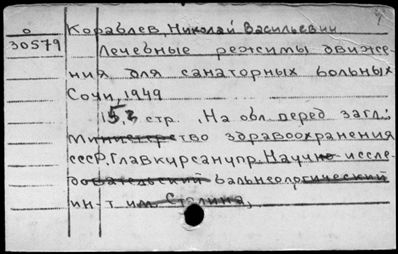 о Кораблев, Николай Васильевич
30579 Лечебные режимы движе-
ния для санаторных больных
Сочи, 1949
15,3 стр. На обл. перед загл.:
Министерство здравоохранения
СССР, Главкурсанупр. Научно иссле-
довательский бальнеологический
ин-т им. Сталина,